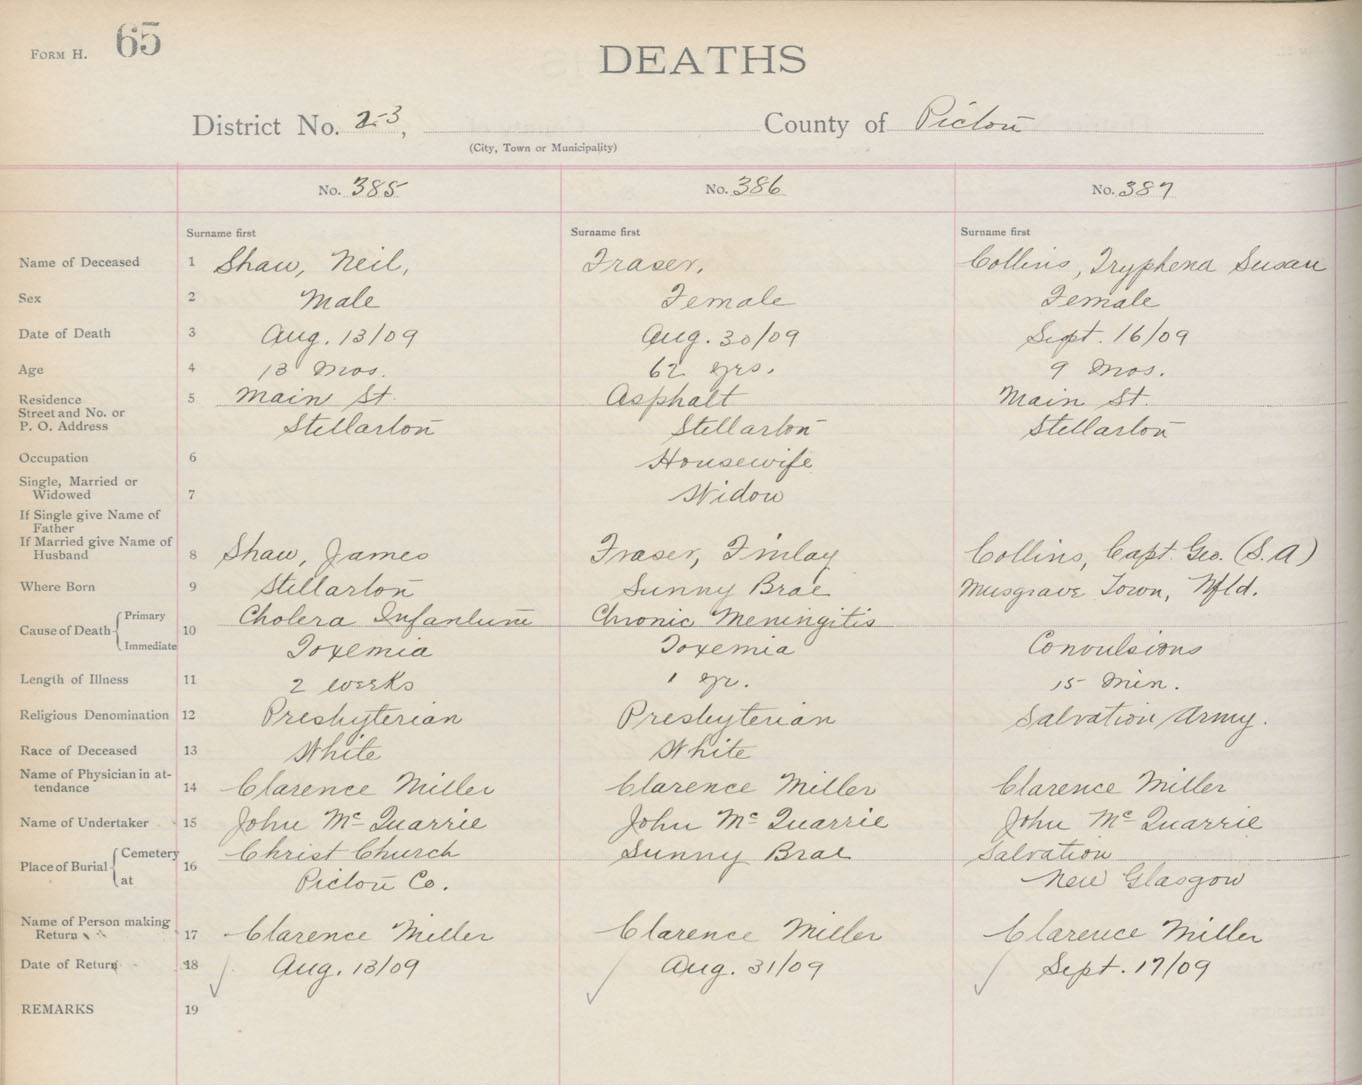 FORM H. 65
DEATHS
District No. 23, County of Pictou
(City, Town or Municipality)
No. 385 No. 386 No. 387
Surname first Surname first Surname first
Name of Deceased 1 Shaw, Neil, Fraser, Collins, Tryphena Susan
Sex 2 Male Female Female
Date of Death 3 Aug. 13/09 Aug. 30/09 Sept. 16/09
Age 4 13 Mos. 62 yrs. 9 Mos.
Residence 5 Main St. Asphalt Main St.
Street and No. or
P. O. Address Stellarton Stellarton Stellarton
Occupation 6 Housewife
Single, Married or
Widowed 7 Widow
If Single give Name of
Father
If Married give Name of
Husband 8 Shaw, James Fraser, Finlay Collins, Capt. Geo. (S.A)
Where Born 9 Stellarton Sunny Brae Musgrave Town, Nfld.
Cause of Death Primary 10 Cholera Infantum Chronic Meningitis
Immediate Toxemia Toxemia Convulsions
Length of Illness 11 2 weeks 1 yr. 15 Min.
Religious Denomination 12 Presbyterian Presbyterian Salvation Army.
Race of Deceased 13 White White
Name of Physician in at-
tendance 14 Clarence Miller Clarence Miller Clarence Miller
Name of Undertaker 15 John McQuarrie John McQuarrie John McQuarrie
Place of Burial Cemetery 16 Christ Church Sunny Brae Salvation
at Pictou Co. New Glasgow
Name of Person making
Return 17 Clarence Miller Clarence Miller Clarence Miller
Date of Return 18 Aug. 13/09 Aug. 31/09 Sept. 17/09
REMARKS 19